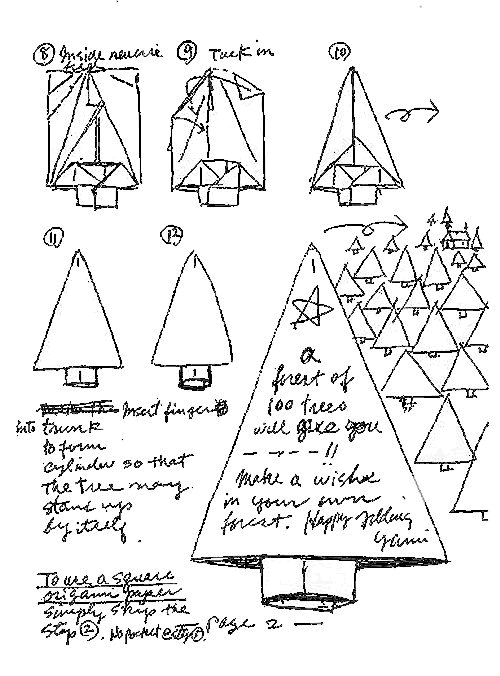 ⑧ Inside reverse
⑨ Tuck in
⑩
⑪
⑫
Insert finger
into trunk
to form
cylinder so that
the tree may
stand up
by itself.
a
forest of
100 trees
will give you
- - - - !!
Make a wish
in your own
forest. Happy folding
Yami
To use a square
origami paper
simply skip the
Step ②. No pocket
Page 2 —